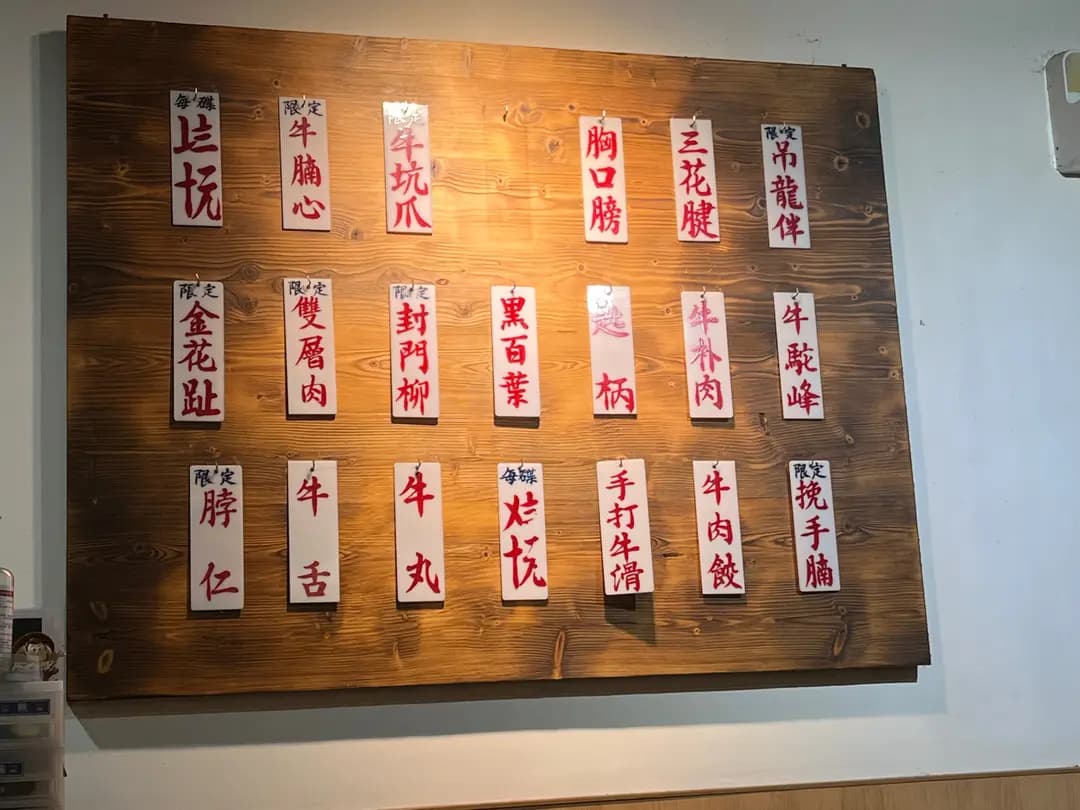 每碟
限定
牛腩心
限定
牛坑爪
胸口膀
三花腱
限定
吊龍伴
限定
金花趾
限定
雙層肉
限定
封門柳
黑百葉
匙柄
牛朴肉
牛駝峰
限定
脖仁
牛舌
牛丸
每碟
手打牛滑
牛肉餃
限定
挽手腩